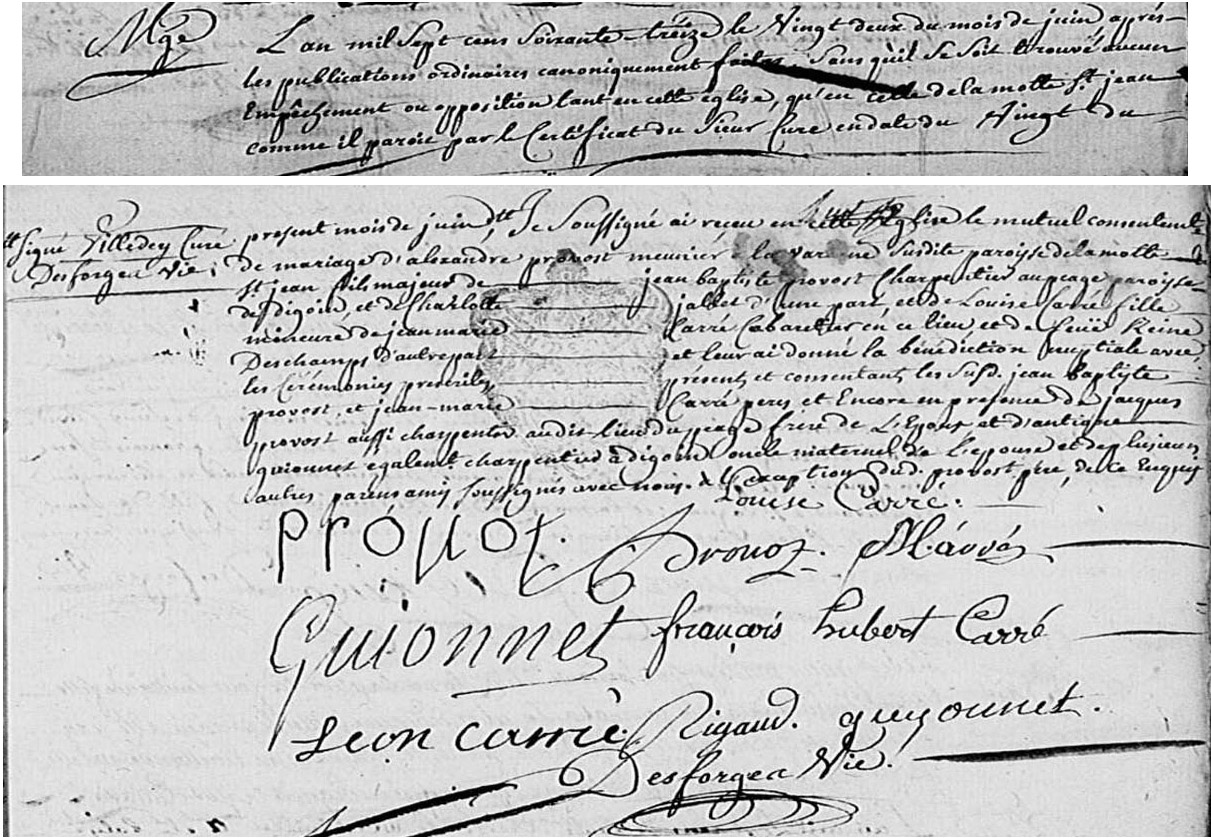 Mge
L'an mil Sept cens Soixante-treize le Vingt deux du mois de juin après-
les publications ordinaires canoniquement faites, Sans qu'il se soit trouvé aucun
Empêchement ou opposition tant en cette église, qu'en celle de la motte St. jean
comme il paroit par le Certificat du Sieur Curé en date du Vingt du
Signé Villedey Curé
Desforges Vic;
present mois de juin, Je Soussigné ai receu en cette Eglise le mutuel consentemt
de mariage d'alexandre provost meunier à la varenne Susdite paroisse de la motte
St jean fils majeur de jean baptiste provost Charpentier au peage paroisse
de digoin, et de Charlotte jallet d'une part et de Louise Carré fille
mineure de jean marie Carré Cabaretier en ce lieu et de feüe Reine
Deschamps d'autre part et leur ai donné la bénédiction nuptiale avec
les Cérémonies prescrites, présents et consentants les Susd. jean baptiste
provost, et jean-marie Carré peres et Encore en présence de jacques
provost aussi charpentier au dit lieu du peage frere de L'Epoux et d'antoine
guionnet égalemt. charpentier à digoin oncle maternel de l'epouse et de plusieurs
autres parens amis soussignés avec nous. à l'exception dud. provost pere, de ce Enquis
Louise Carré.
provot. Provot. Marré
Guionnet françois hubert Carré
Leon carré. Rigaud. gueyonnet.
Desforges Vic.